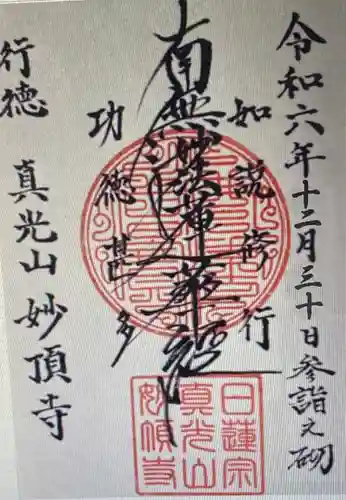 令和六年十二月三十日参詣之砌
如説修行
南無妙法蓮華経
功徳甚多
行徳 真光山妙頂寺
日蓮宗
真光山
妙頂寺